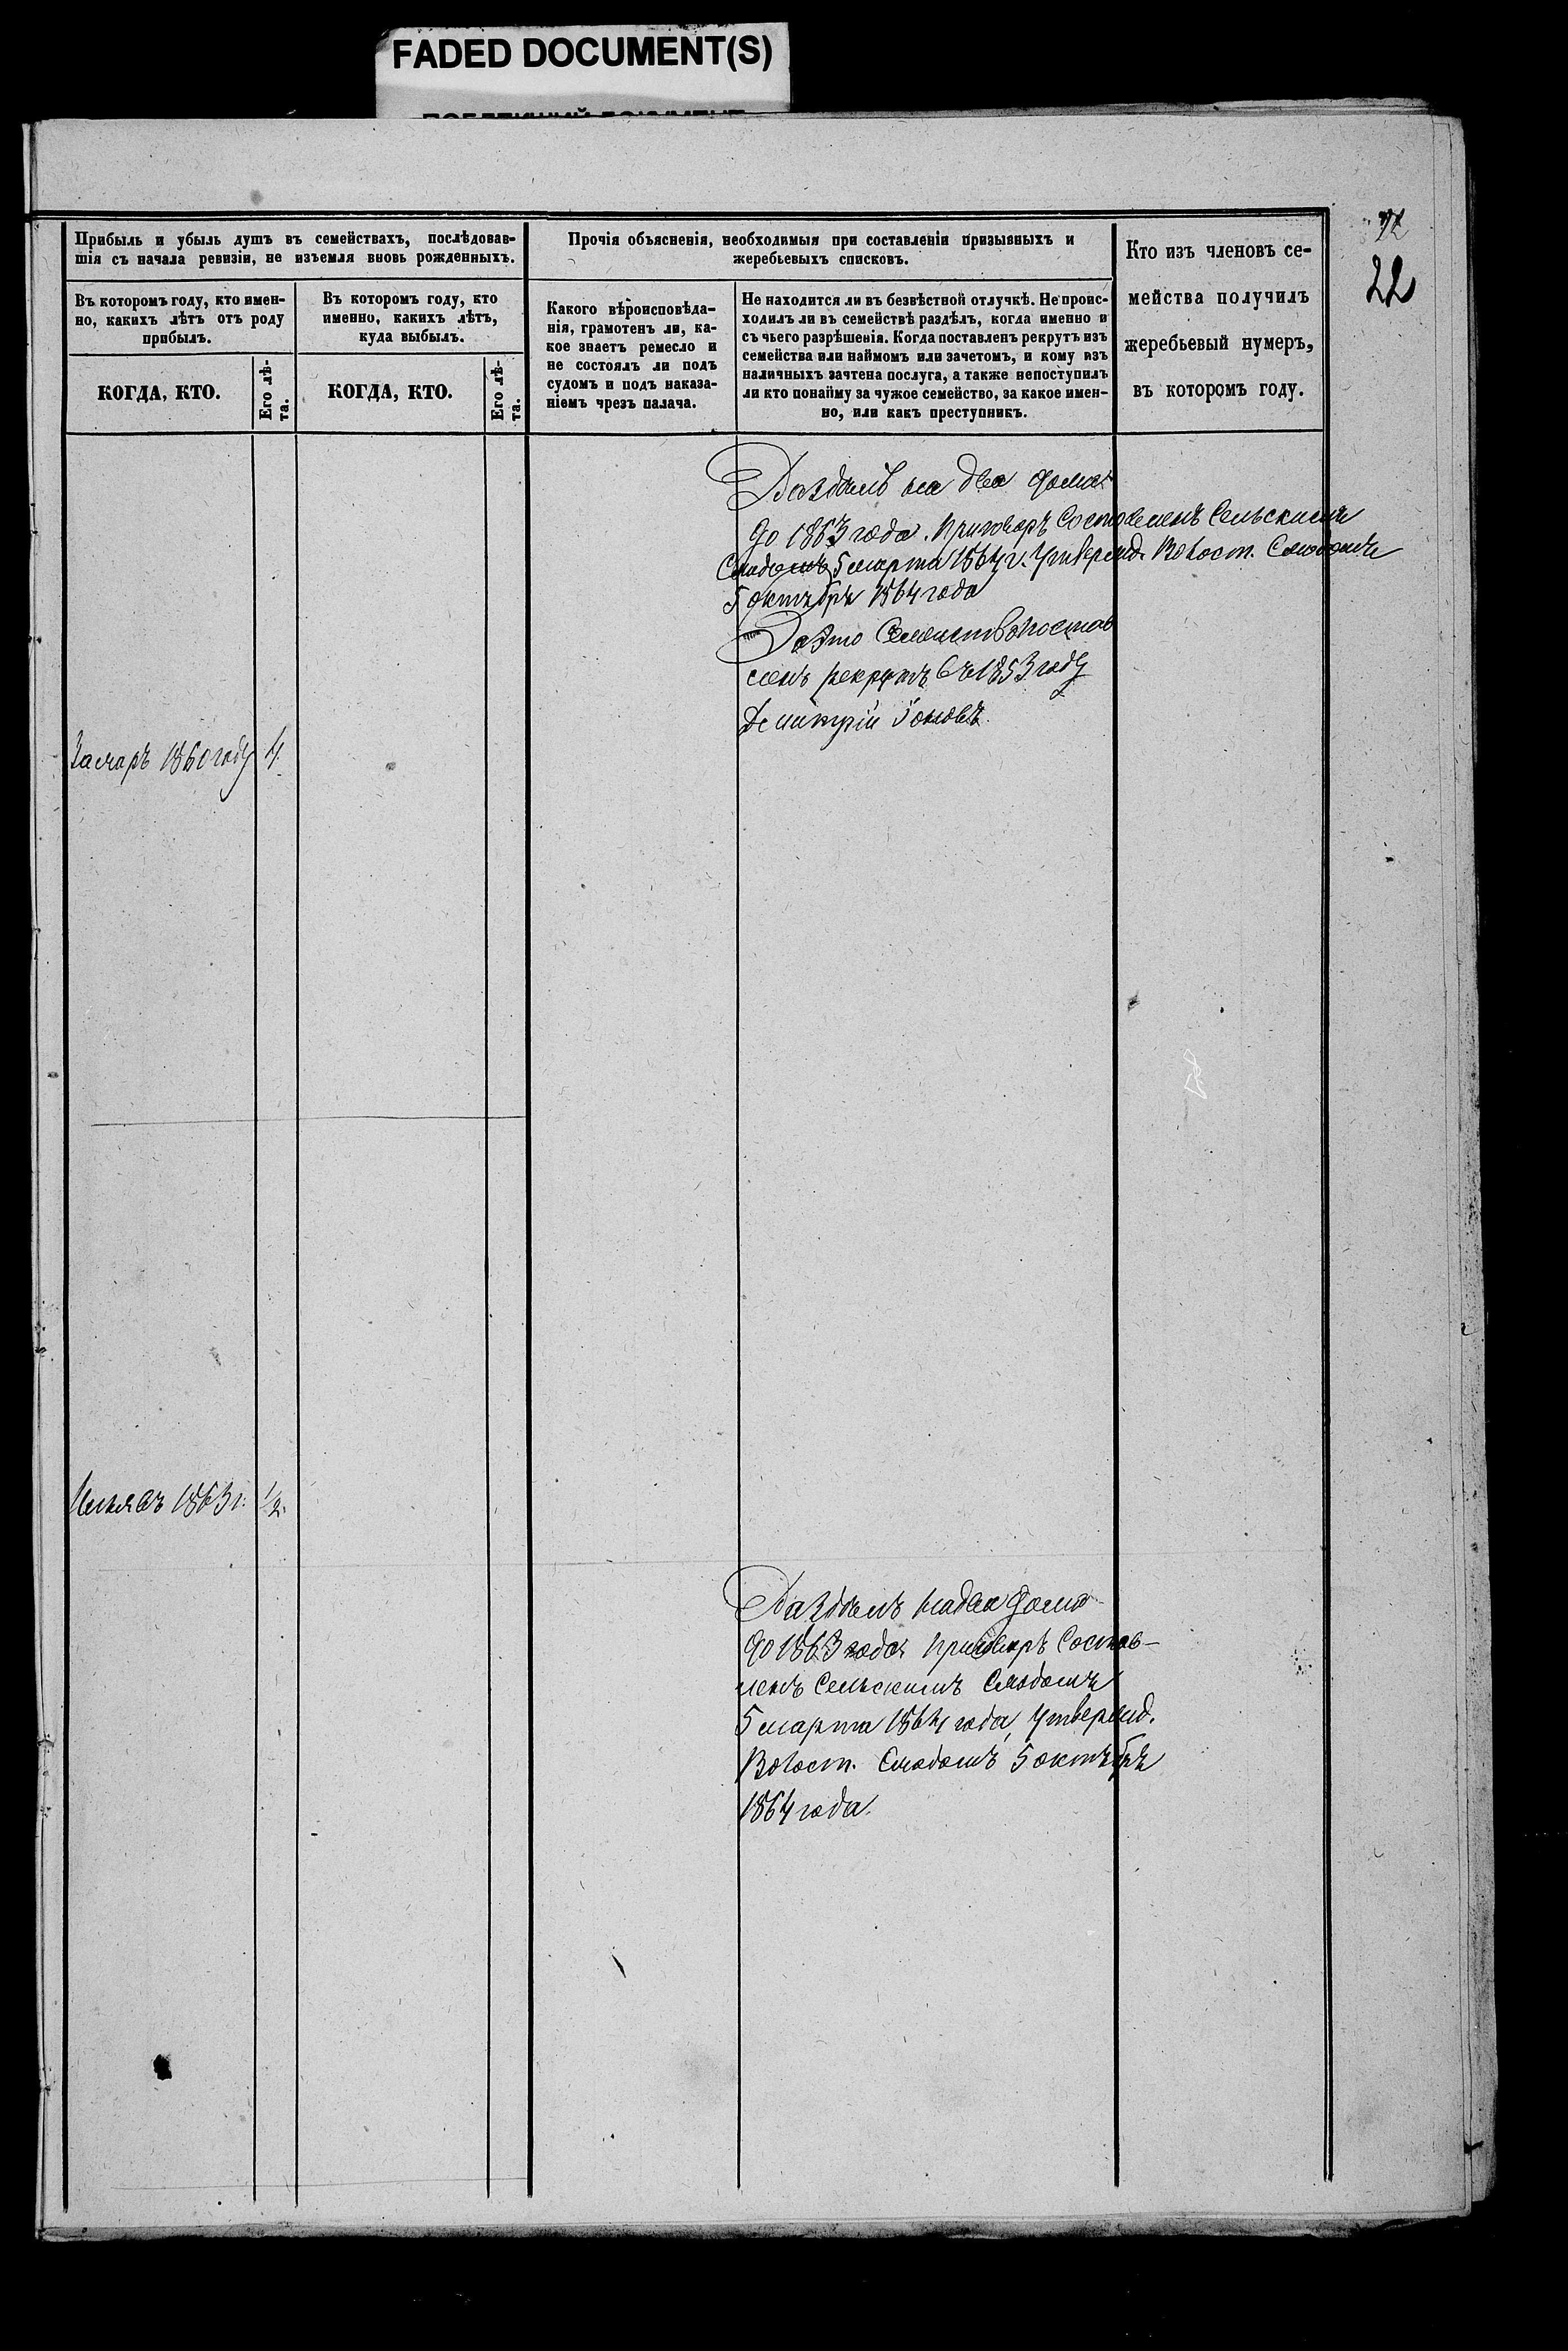 FADED DOCUMENT(S)
22
Прибыль и убыль душъ въ семействахъ, послѣдовав-
шія съ начала ревизіи, не изъемля вновь рожденныхъ.
Въ которомъ году, кто имен-
но, какихъ лѣтъ отъ роду
прибылъ.
КОГДА, КТО.
Его лѣ-
та.
Въ которомъ году, кто
именно, какихъ лѣтъ,
куда выбылъ.
КОГДА, КТО.
Его лѣ-
та.
Прочія объясненія, необходимыя при составленіи призывныхъ и
жеребьевыхъ списковъ.
Какого вѣроисповѣда-
нія, грамотенъ ли, ка-
кое знаетъ ремесло и
не состоялъ ли подъ
судомъ и подъ наказа-
ніемъ чрезъ палача.
Не находится ли въ безвѣстной отлучкѣ. Не проис-
ходилъ ли въ семействѣ раздѣлъ, когда именно и
съ чьего разрѣшенія. Когда поставленъ рекрутъ изъ
семейства или наймомъ или зачетомъ, и кому изъ
наличныхъ зачтена послуга, а также непоступилъ
ли кто понайму за чужое семейство, за какое имен-
но, или какъ преступникъ.
Кто изъ членовъ се-
мейства получилъ
жеребьевый нумеръ,
въ которомъ году.
на два дома
до 1863 года. приговоръ Составленъ Сельскимъ
Сходомъ 5 марта 1864 г. Утвержд. Волост. Сходомъ
5 октября 1864 года
Семейство постав
ленъ рекрутъ въ 1853 году
Дмитрій Іоновъ
1860 году 4.
1863 г. 1/2.
на два дома
до 1863 года приговоръ Состав-
ленъ Сельскимъ Сходомъ
5 марта 1864 года, Утвержд.
Волост. Сходомъ 5 октября
1864 года.